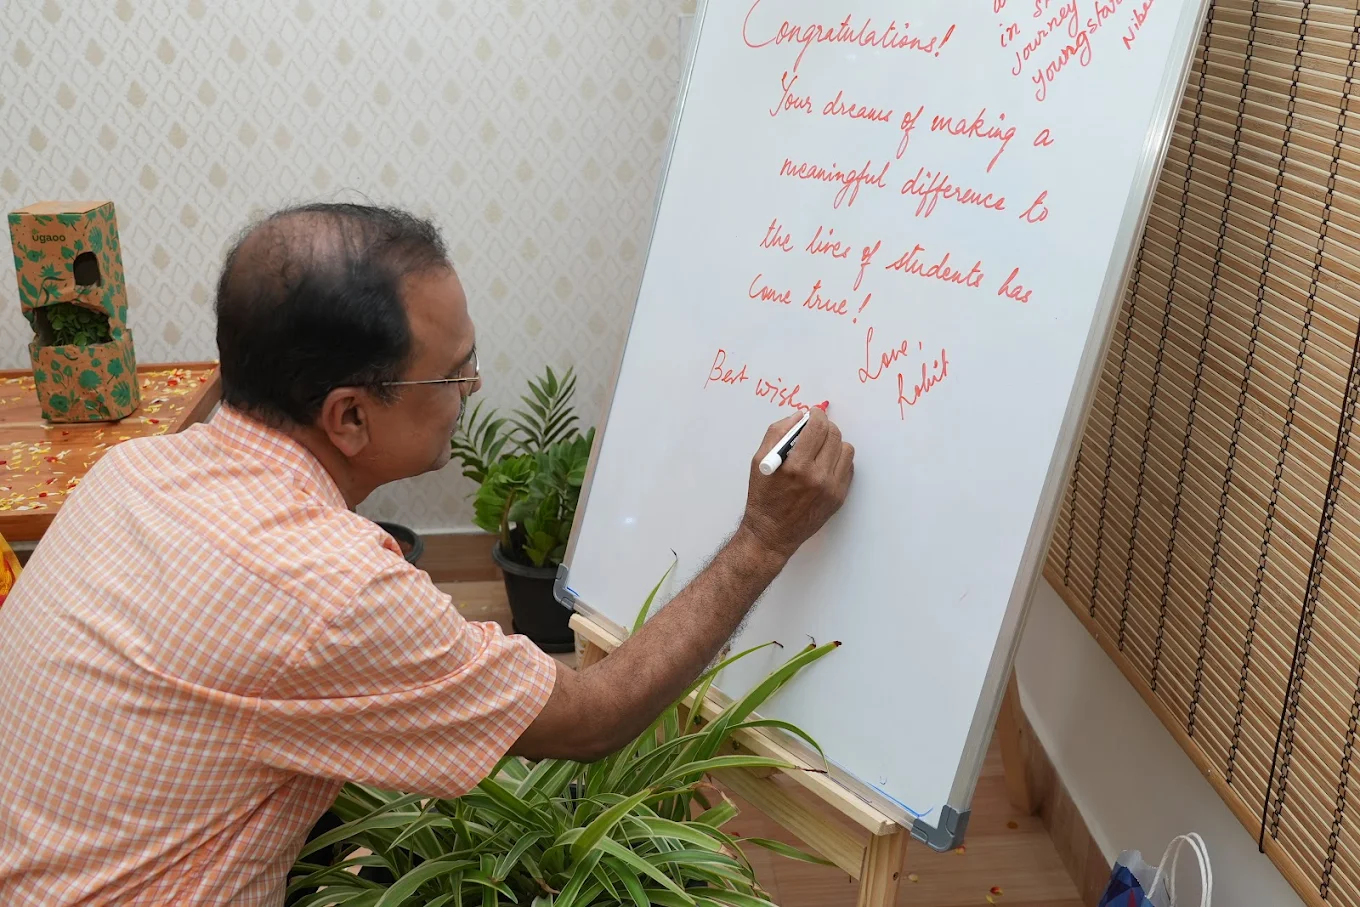 Congratulations!
Your dreams of making a
meaningful difference to
the lives of students has
come true!
Love,
Best wishe
in
Journey
youngstar
ugaoo